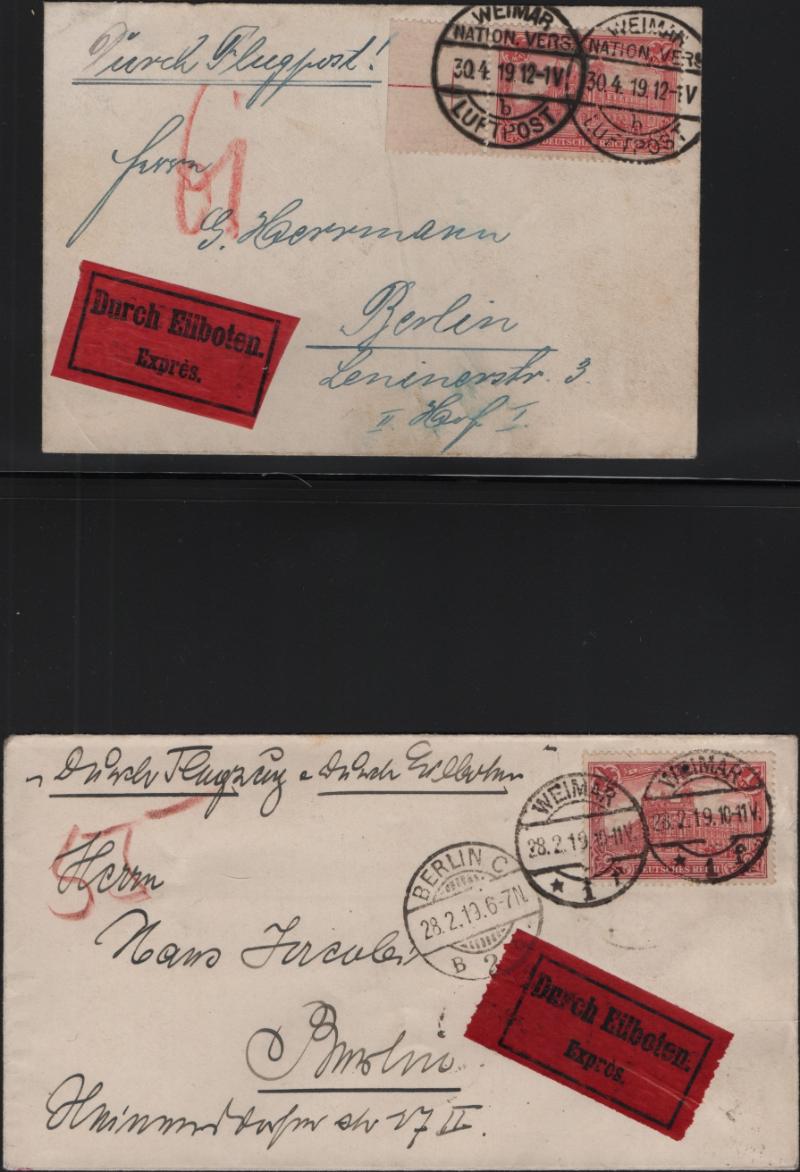 Durch Flugpost!
WEIMAR
NATION. VERS.
30.4.19.12-1V
b
LUFTPOST
WEIMAR
NATION. VERS.
30.4.19.12-1V
b
LUFTPOST
DEUTSCHES REICH
Herrn
G. Herrmann
Berlin
Durch Eilboten.
Exprès.
3.
II. Hof I.
„Durch Flugzug" „durch Eilboten"
WEIMAR
28.2.19.10-11V.
* 1 f
WEIMAR
28.2.19.10-11V.
* 1 f
1
DEUTSCHES REICH
BERLIN C
28.2.19.6-7N.
B 2
Herrn
Hans
Berlin
17 II.
Durch Eilboten.
Exprès.